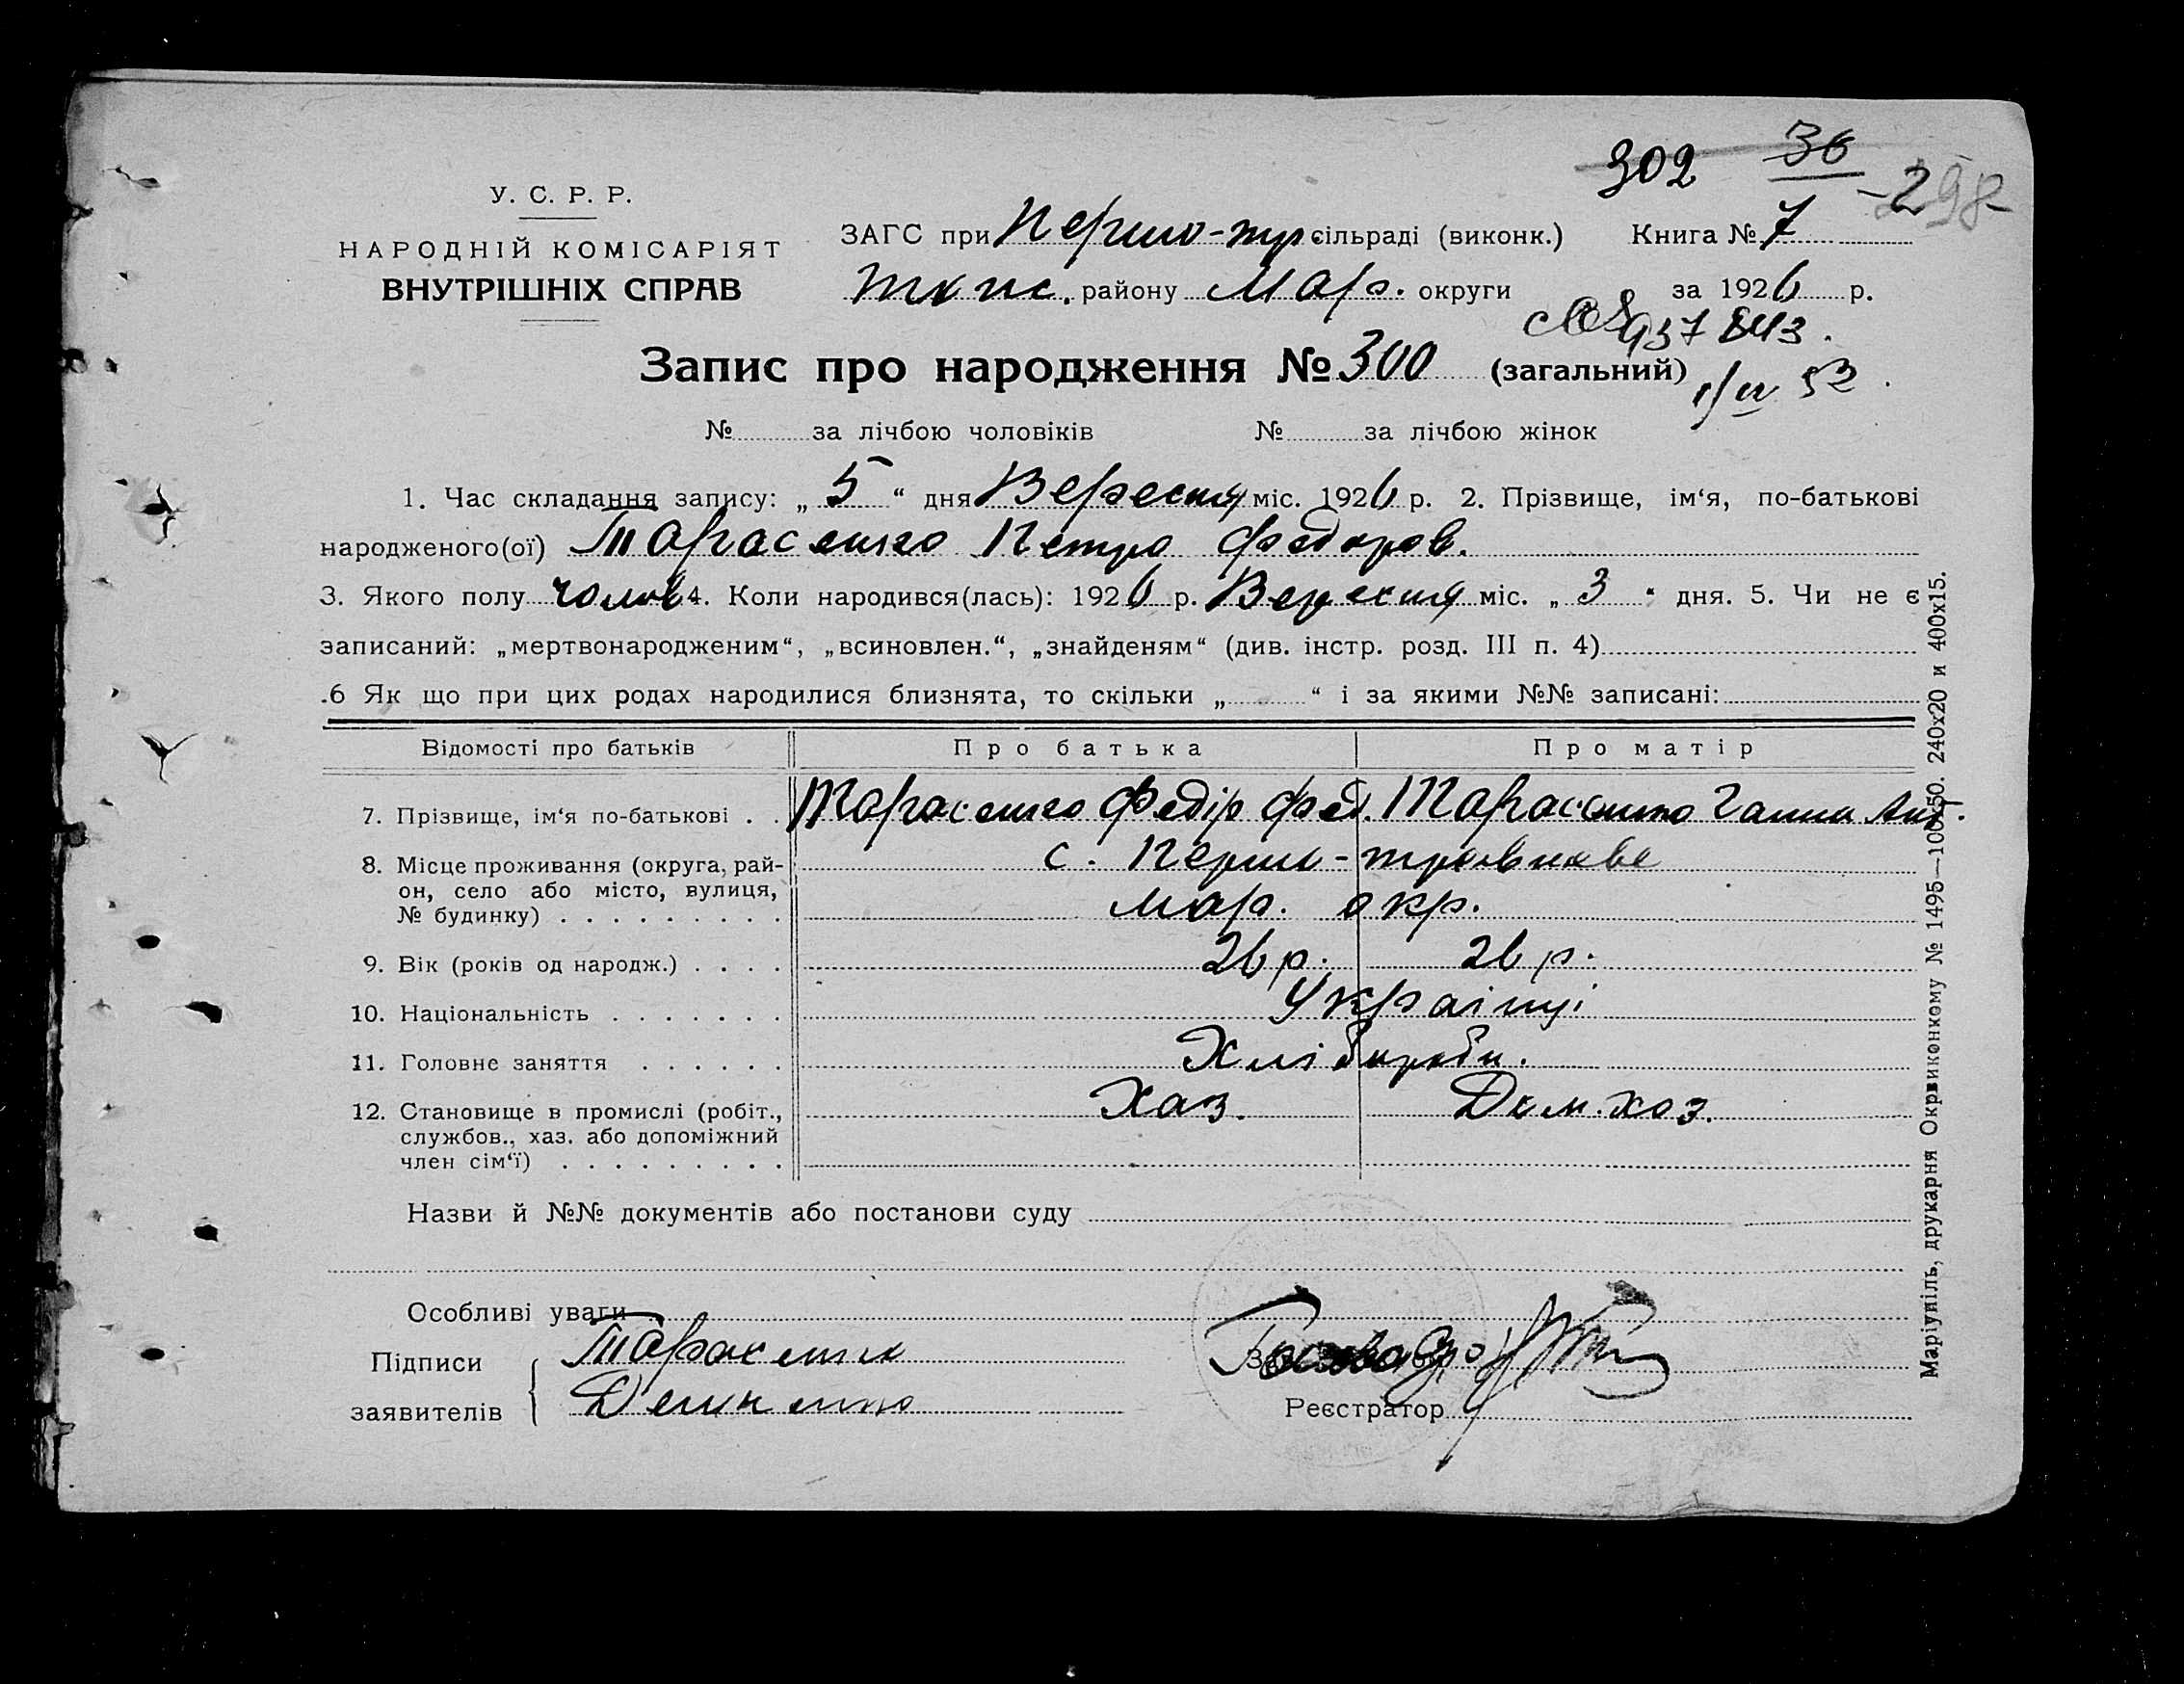 302 36
-298-
У. С. Р. Р.
НАРОДНІЙ КОМІСАРІЯТ
ВНУТРІШНІХ СПРАВ
ЗАГС при Першо-тр сільраді (виконк.) Книга № 7
району Мар. округи за 1926 р.
937843.
Запис про народження № 300 (загальний)
1/IV 52
№ за лічбою чоловіків № за лічбою жінок
1. Час складання запису: „ 5 “ дня Вересня міс. 1926 р. 2. Прізвище, ім‘я, по-батькові
народженого(ої) Тарасенко Петро Федоров.
3. Якого полу чолов 4. Коли народився(лась): 1926 р. Вересня міс. „ 3 “ дня. 5. Чи не є
записаний: „мертвонародженим“, „всиновлен.“, „знайденям“ (див. інстр. розд. III п. 4)
.6 Як що при цих родах народилися близнята, то скільки „ “ і за якими №№ записані:
Відомості про батьків Про батька Про матір
7. Прізвище, ім‘я по-батькові . . Тарасенко Федір Фед. Тарасенко Ганна Ант.
8. Місце проживання (округа, рай- с. Перш-травневе
он, село або місто, вулиця,
№ будинку) . . . . . . . . . Мар. окр.
9. Вік (років од народж.) . . . . 26 р. 26 р.
10. Національність . . . . . . . Українці
11. Головне заняття . . . . . . Хлібороби.
12. Становище в промислі (робіт., Хаз. Дом. хоз.
службов., хаз. або допоміжний
член сім‘ї) . . . . . . . . .
Назви й №№ документів або постанови суду
Особливі уваги
Підписи Тарасенко
заявителів
Реєстратор
Маріупіль, друкарня Окрвиконкому № 1495—100х50. 240х20 и 400х15.